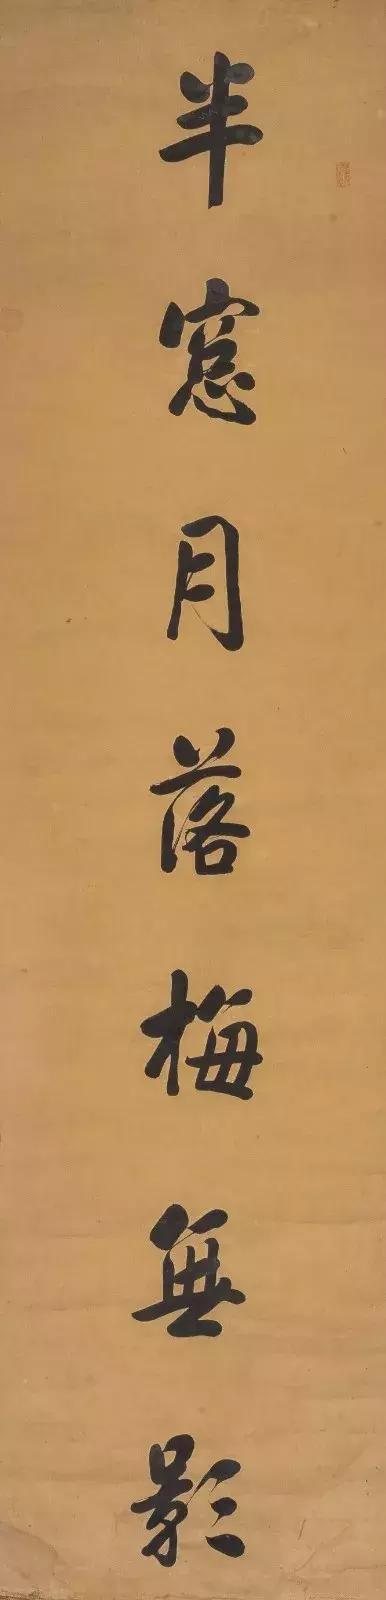 半窓月落梅無影